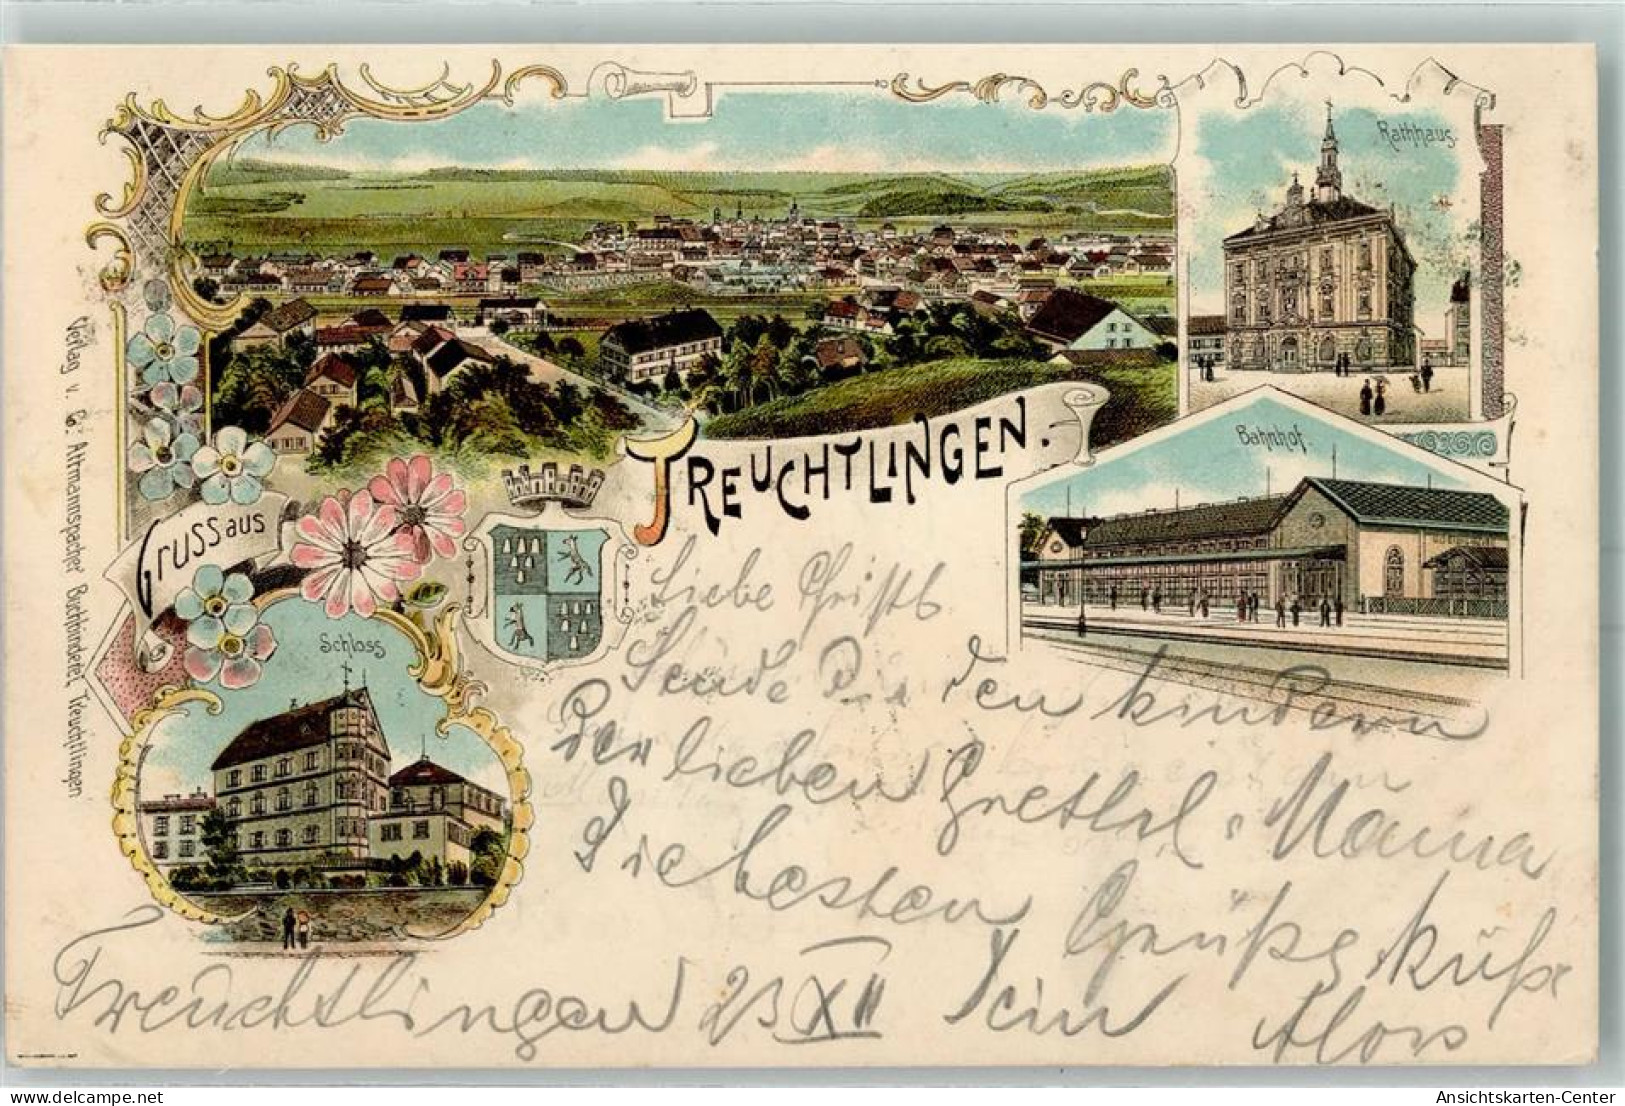 Rathhaus.
Bahnhof.
TREUCHTLINGEN.
Gruss aus
Schloss
Verlag v. G. Altmannspacher Buchbinderei, Treuchtlingen
Liebe
Sende Dir den Kindern
der lieben Grethel Mama
Die besten Grüße Küße
Treuchtlingen 23 XII Dein Alois
delcampe.net
Ansichtskarten-Center